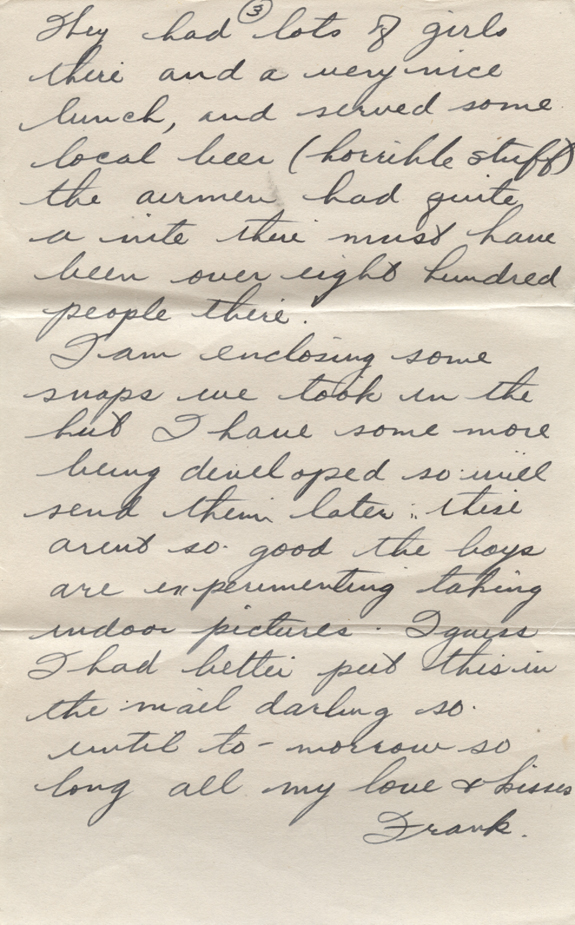 3
They had lots of girls
there and a very nice
lunch, and served some
local beer (horrible stuff)
the airmen had quite
a nite there must have
been over eight hundred
people there.
I am enclosing some
snaps we took in the
hut I have some more
being developed so will
send them later. these
arent so good the boys
are experimenting taking
indoor pictures. I guess
I had better put this in
the mail darling so
until to-morrow so
long all my love & kisses
Frank.